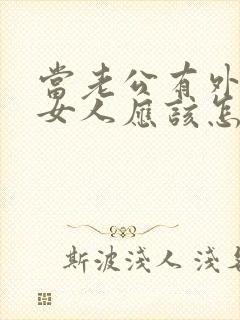 當老公有外
女人應該怎
斯波淺人 淺